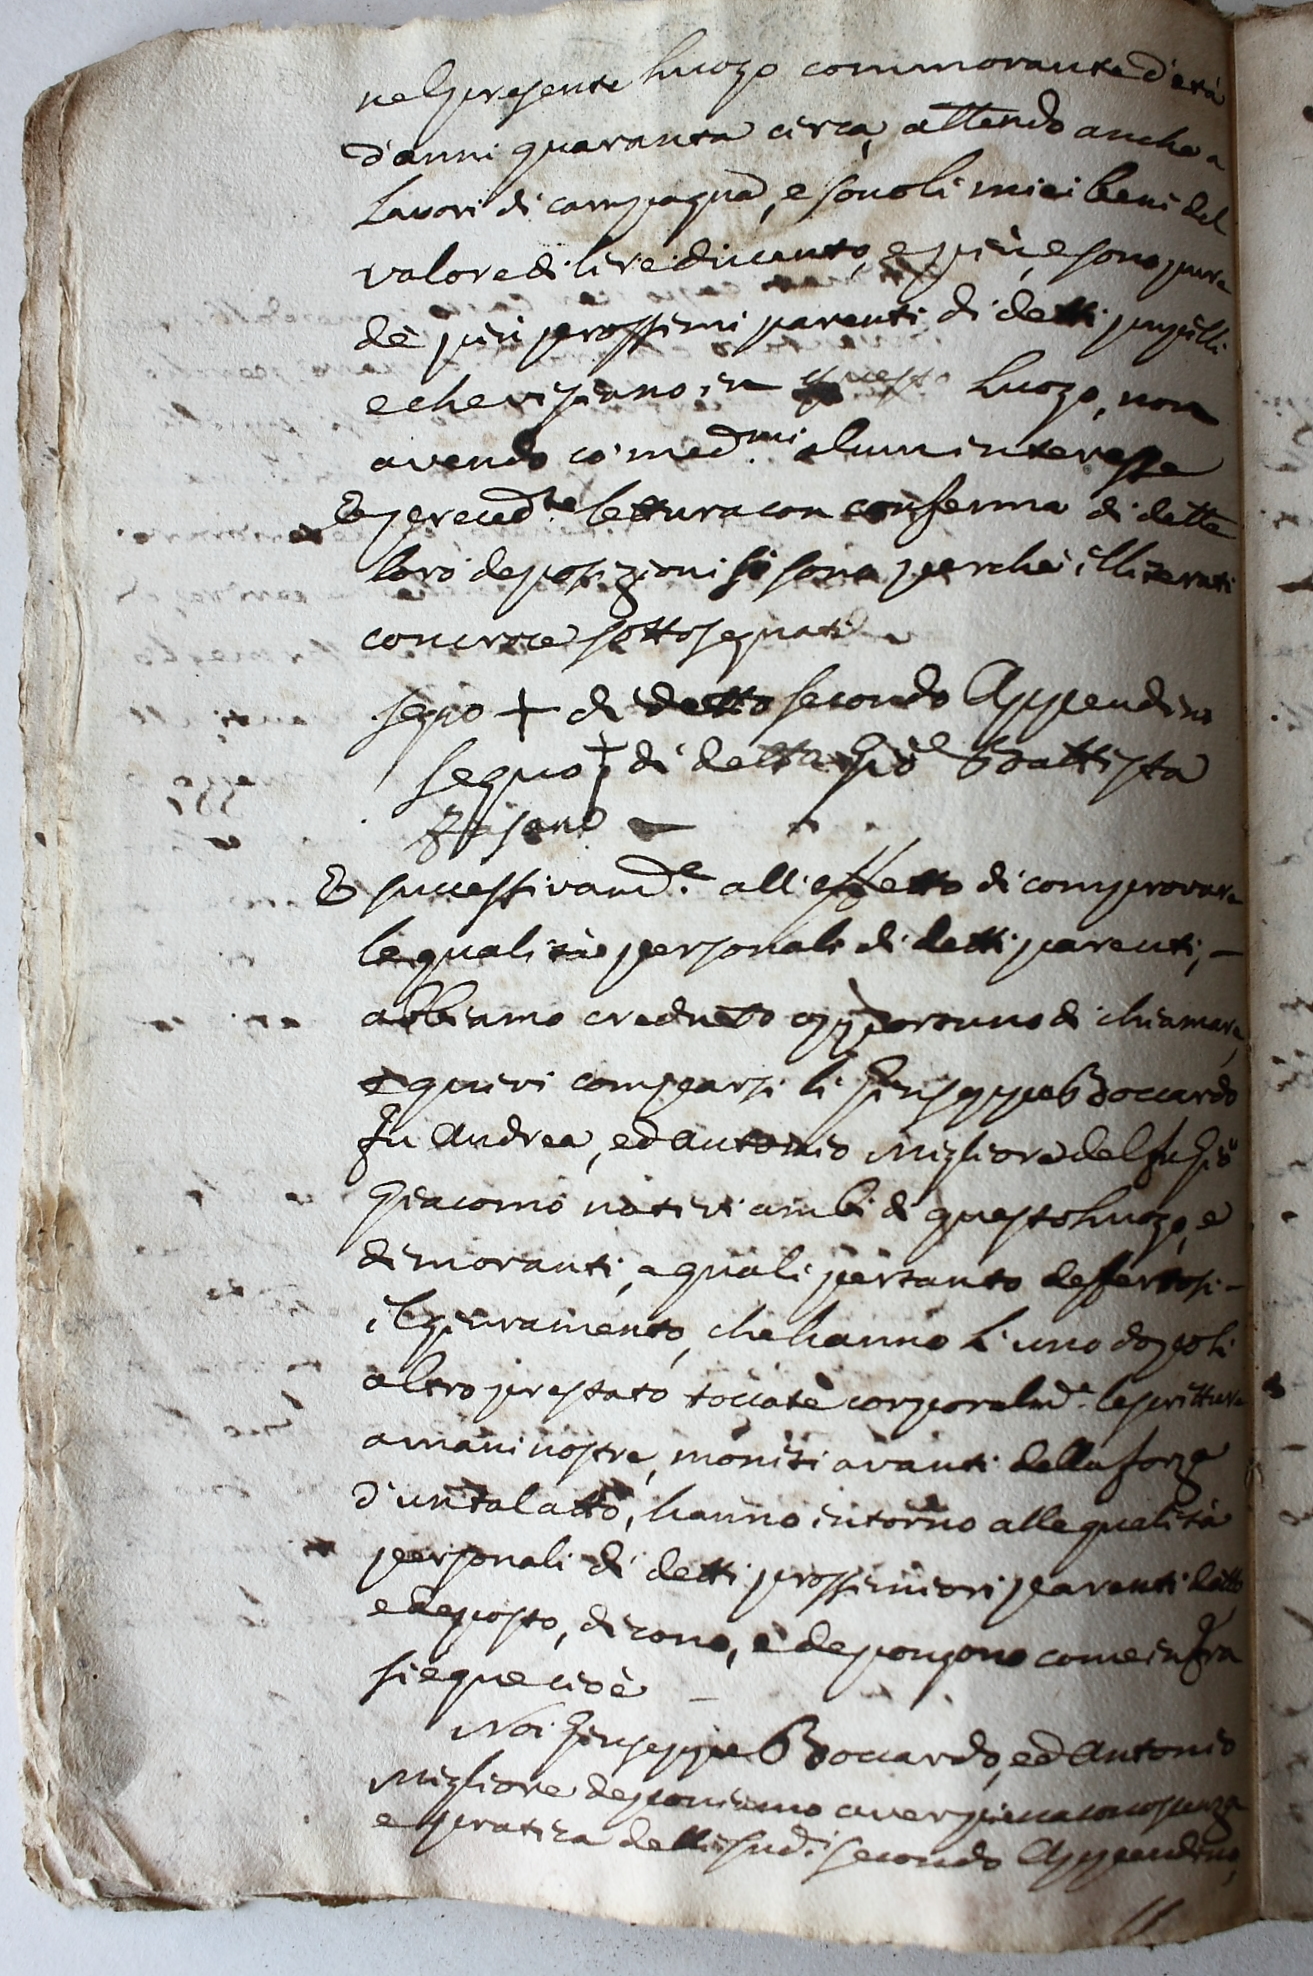 nel presente Luogo commorante d'età
d'anni quaranta circa, attendo anche a
Lavori di campagna, e sono li miei beni del
valore di lire ducento, e più, e sono pure
de più prossimi parenti di detti pupilli
e che visiano in questo Luogo, non
avendo co' med.mi alcun interesse
E preced.te lettura con conferma di dette
loro deposizioni si sono perchè illiterati
con croce sottosegnati
Segno + di detto secondo Appendino
Segno + di detto Gio Battista
E successivam.e all'effetto di comprovare
le qualità personali di detti parenti, -
abbiamo creduto opportuno di chiamare,
e quivi comparsi li Giuseppe Boccardo
fu Andrea, ed Antonio Migliore del fu Gio
Giacomo nativi ambi di questo Luogo, e
dimoranti, a quali pertanto deffertosi -
il giuramento, che hanno l'uno dopo l'
altro prestato toccate corporalm.e le scritture
a mani nostre, moniti avanti della forza
d'un tal atto, hanno intorno alle qualità
personali di detti prossimiori parenti detto
e deposto, dicono, e depongono come infra
siegue cioè -
Noi Giuseppe Boccardo, ed Antonio
Migliore deponiamo aver piena conoscenza
e pratica delli sud.i secondo Appendino,